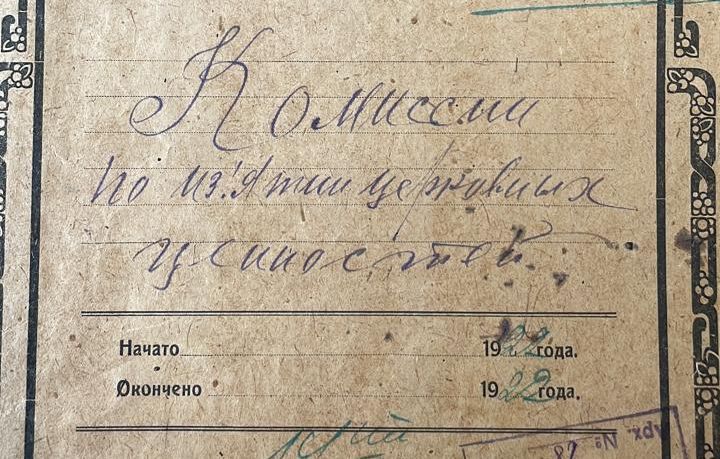 Комиссии
по из'ятии церковных
ценностей
Начато 1922 года.
Окончено 1922 года.
Арх. №